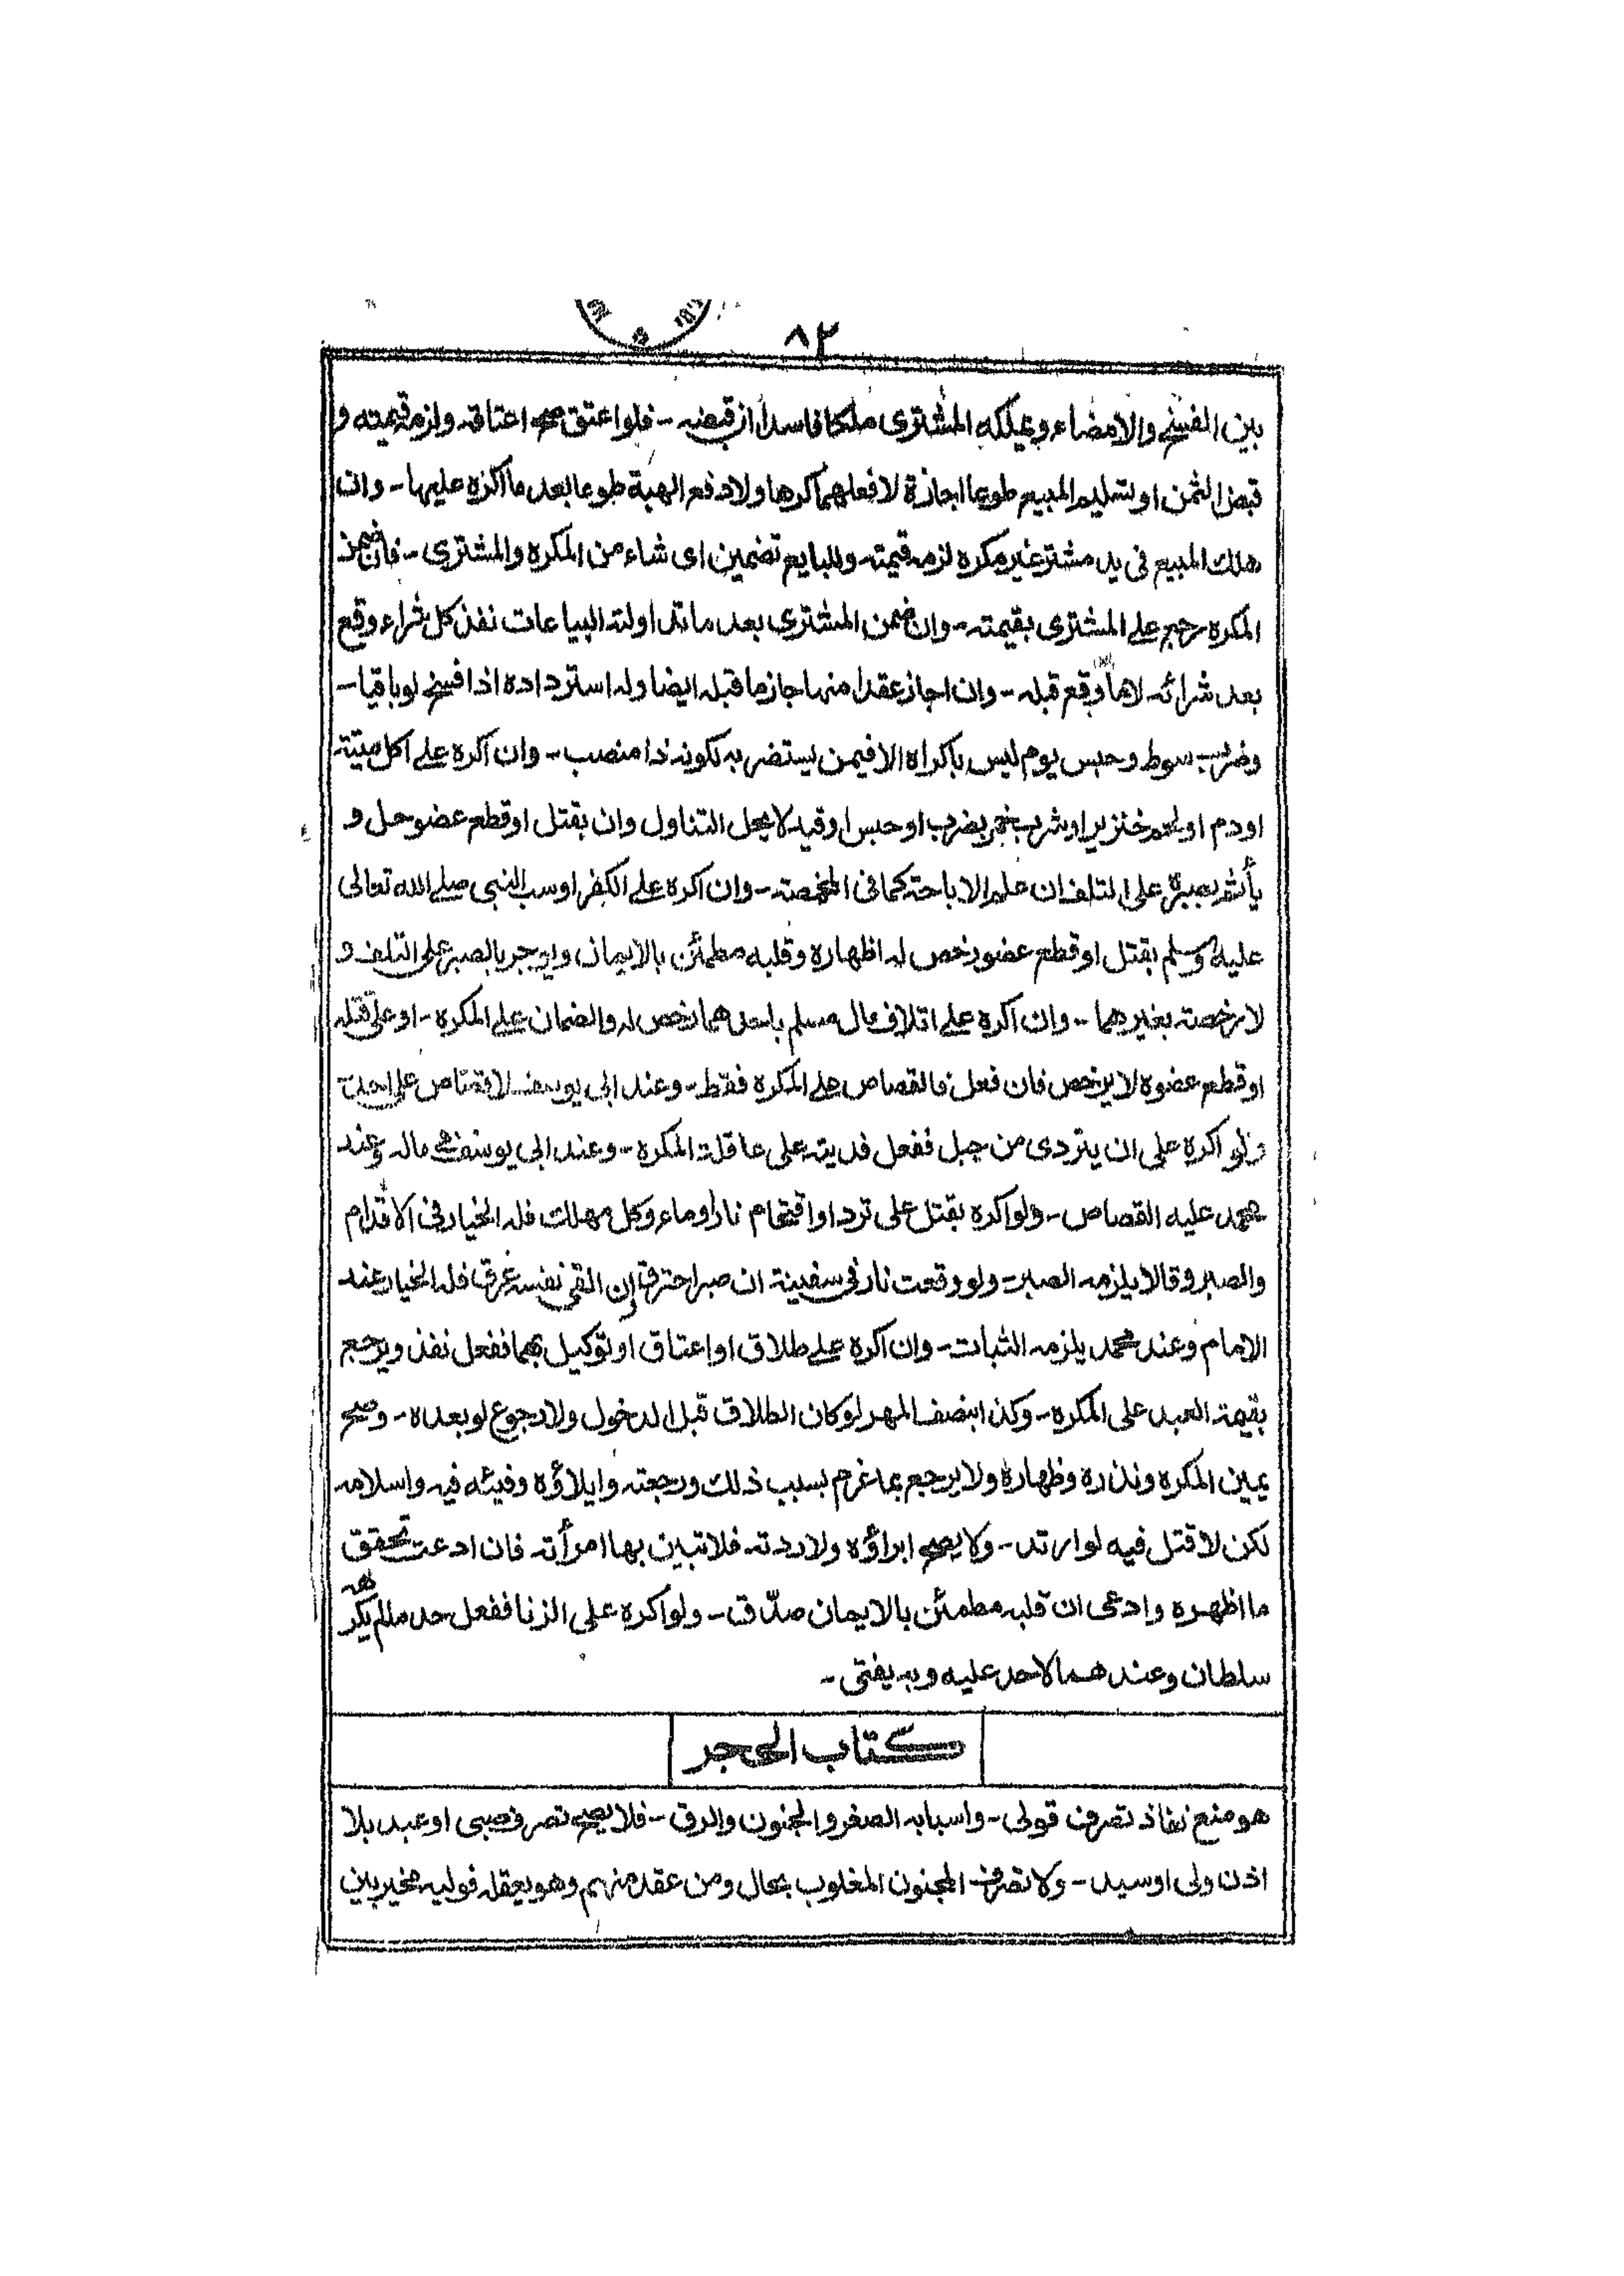 ٨٢
بين الفسخ والامضاء ويملكه المشترى ملكا فاسدا ان قبضه - فلو اعتق صح اعتاقه ولزمه قيمته و
قبض الثمن او تسليم المبيع طوعا اجازة لا فعلهما كرها ولا دفع الهبة طوعا بعد ما اكره عليها - وان
هلك المبيع فى يد مشتر غير مكره لزمه قيمته وللبايع تضمين اى شاء من المكره والمشترى - فان ضمن
المكره رجع على المشترى بقيمته - وان ضمن المشترى بعد ما تداولته البياعات نفذ كل شراء وقع
بعد شرائه لا ما وقع قبله - وان اجاز عقدا منها جاز ما قبله ايضا وله استرداده اذا فسخ لو باقيا -
وضرب سوط وحبس يوم ليس باكراه الا فيمن يستضر به لكونه ذا منصب - وان اكره على اكل ميتة
او دم او لحم خنزير او شرب خمر بضرب او حبس او قيد لا يحل التناول وان بقتل او قطع عضو حل و
يأثم بصبره على التلف ان علم الاباحة كما فى المخمصة - وان اكره على الكفر او سب النبى صلى الله تعالى
عليه وسلم بقتل او قطع عضو رخص له اظهاره وقلبه مطمئن بالايمان ويوجر بالصبر على التلف و
لا رخصة بغيرهما - وان اكره على اتلاف مال مسلم باحدهما رخص له والضمان على المكره - او على قتله
او قطع عضوه لا يرخص فان فعل فالقصاص على المكره فقط - وعند ابى يوسف لا قصاص على احد
ولو اكره على ان يتردى من جبل ففعل فديته على عاقلة المكره - وعند ابى يوسف فى ماله وعند
محمد عليه القصاص - ولو اكره بقتل على ترد او اقتحام نار او ماء وكل مهلك فله الخيار فى الاقدام
والصبر وقالا يلزمه الصبر - ولو وقعت نار فى سفينة ان صبر احترق وان القى نفسه غرق فله الخيار عند
الامام وعند محمد يلزمه الثبات - وان اكره على طلاق او اعتاق او توكيل بهما ففعل نفذ ويرجع
بقيمة العبد على المكره - وكذا بنصف المهر لو كان الطلاق قبل الدخول ولا رجوع لو بعده - وصح
يمين المكره ونذره وظهاره ولا يرجع بما غرم بسبب ذلك ورجعته وايلاؤه وفيئه فيه واسلامه
لكن لا قتل فيه لو ارتد - ولا يصح ابراؤه ولا ردته فلا تبين بها امرأته فان ادعت تحقق
ما اظهره وادعى ان قلبه مطمئن بالايمان صدّق - ولو اكره على الزنا ففعل حد ما لم يكرهه
سلطان وعندهما لا حد عليه وبه يفتى -
كتاب الحجر
هو منع نفاذ تصرف قولى - واسبابه الصغر والجنون والرق - فلا يصح تصرف صبى او عبد بلا
اذن ولى او سيد - ولا تصرف المجنون المغلوب بحال ومن عقد منهم وهو يعقله فوليه مخير بين